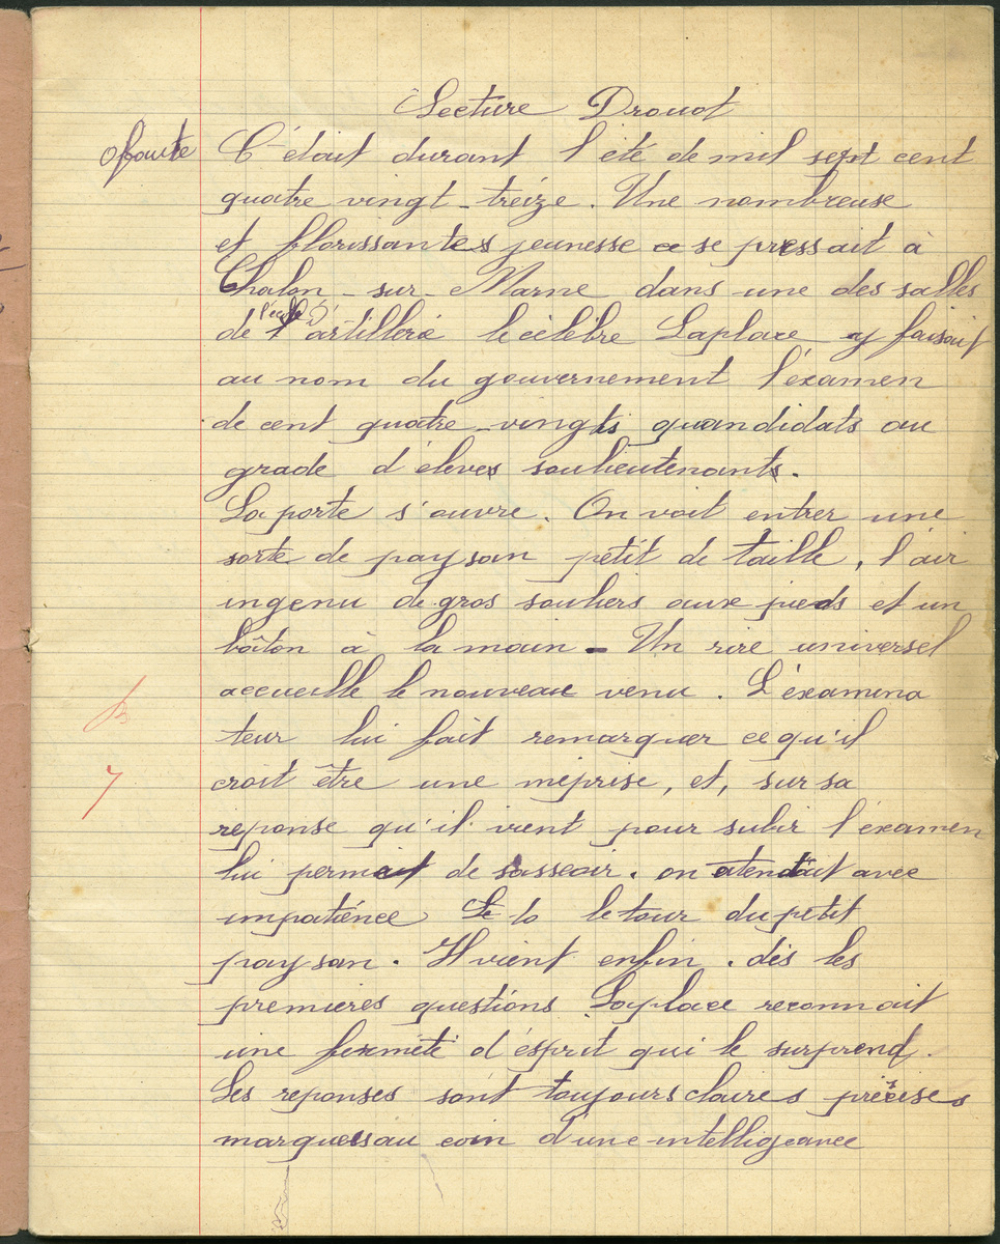 Lecture Drouot
0 faute C'était durant l'été de mil sept cent
quatre vingt-treize. Une nombreuse
et florissantes jeunesse se pressait à
Chalon-sur-Marne dans une des salles
l'école
de l'artillerie le célèbre Laplace y faisait
au nom du gouvernement l'éxamen
de cent quatre-vingts quandidats au
grade d'éleves soulieutenants.
La porte s'ouvre. On voit entrer une
sorte de paysan petit de taille, l'air
ingenu de gros souliers aux pieds et un
bâton à la main - Un rire universel
accueille le nouveau venu. L'éxamina
teur lui fait remarquer ce qu'il
croit être une méprise, et, sur sa
reponse qu'il vient pour subir l'éxamen
lui permait de sasseoir. on atendait avec
impatiénce le tour du petit
paysan. Il vient enfin. dès les
premieres questions Laplace reconnait
une fermeté d'ésprit qui le surprend.
Ses reponses sont toujours claires précises
marquesau coin d'une intelligeance